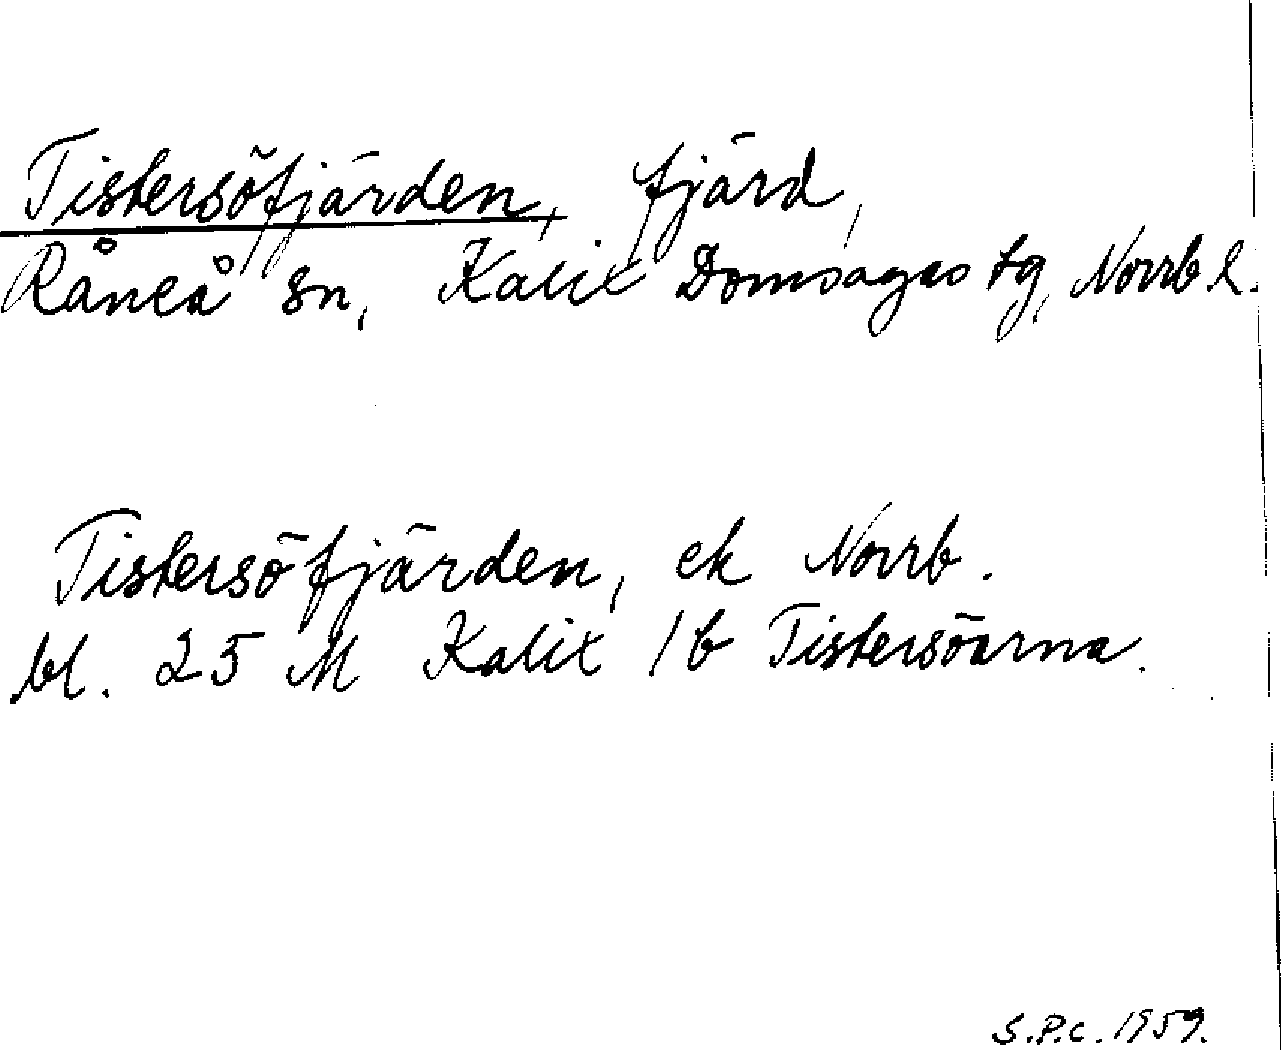 Tistersöfjärden, fjärd,
Råneå sn, Kalix Domsagas tg, Norrb l.
Tistersöfjärden, ek Norrb.
bl. 25 M Kalix 1b Tistersöarna.
S.P.C. 1959.